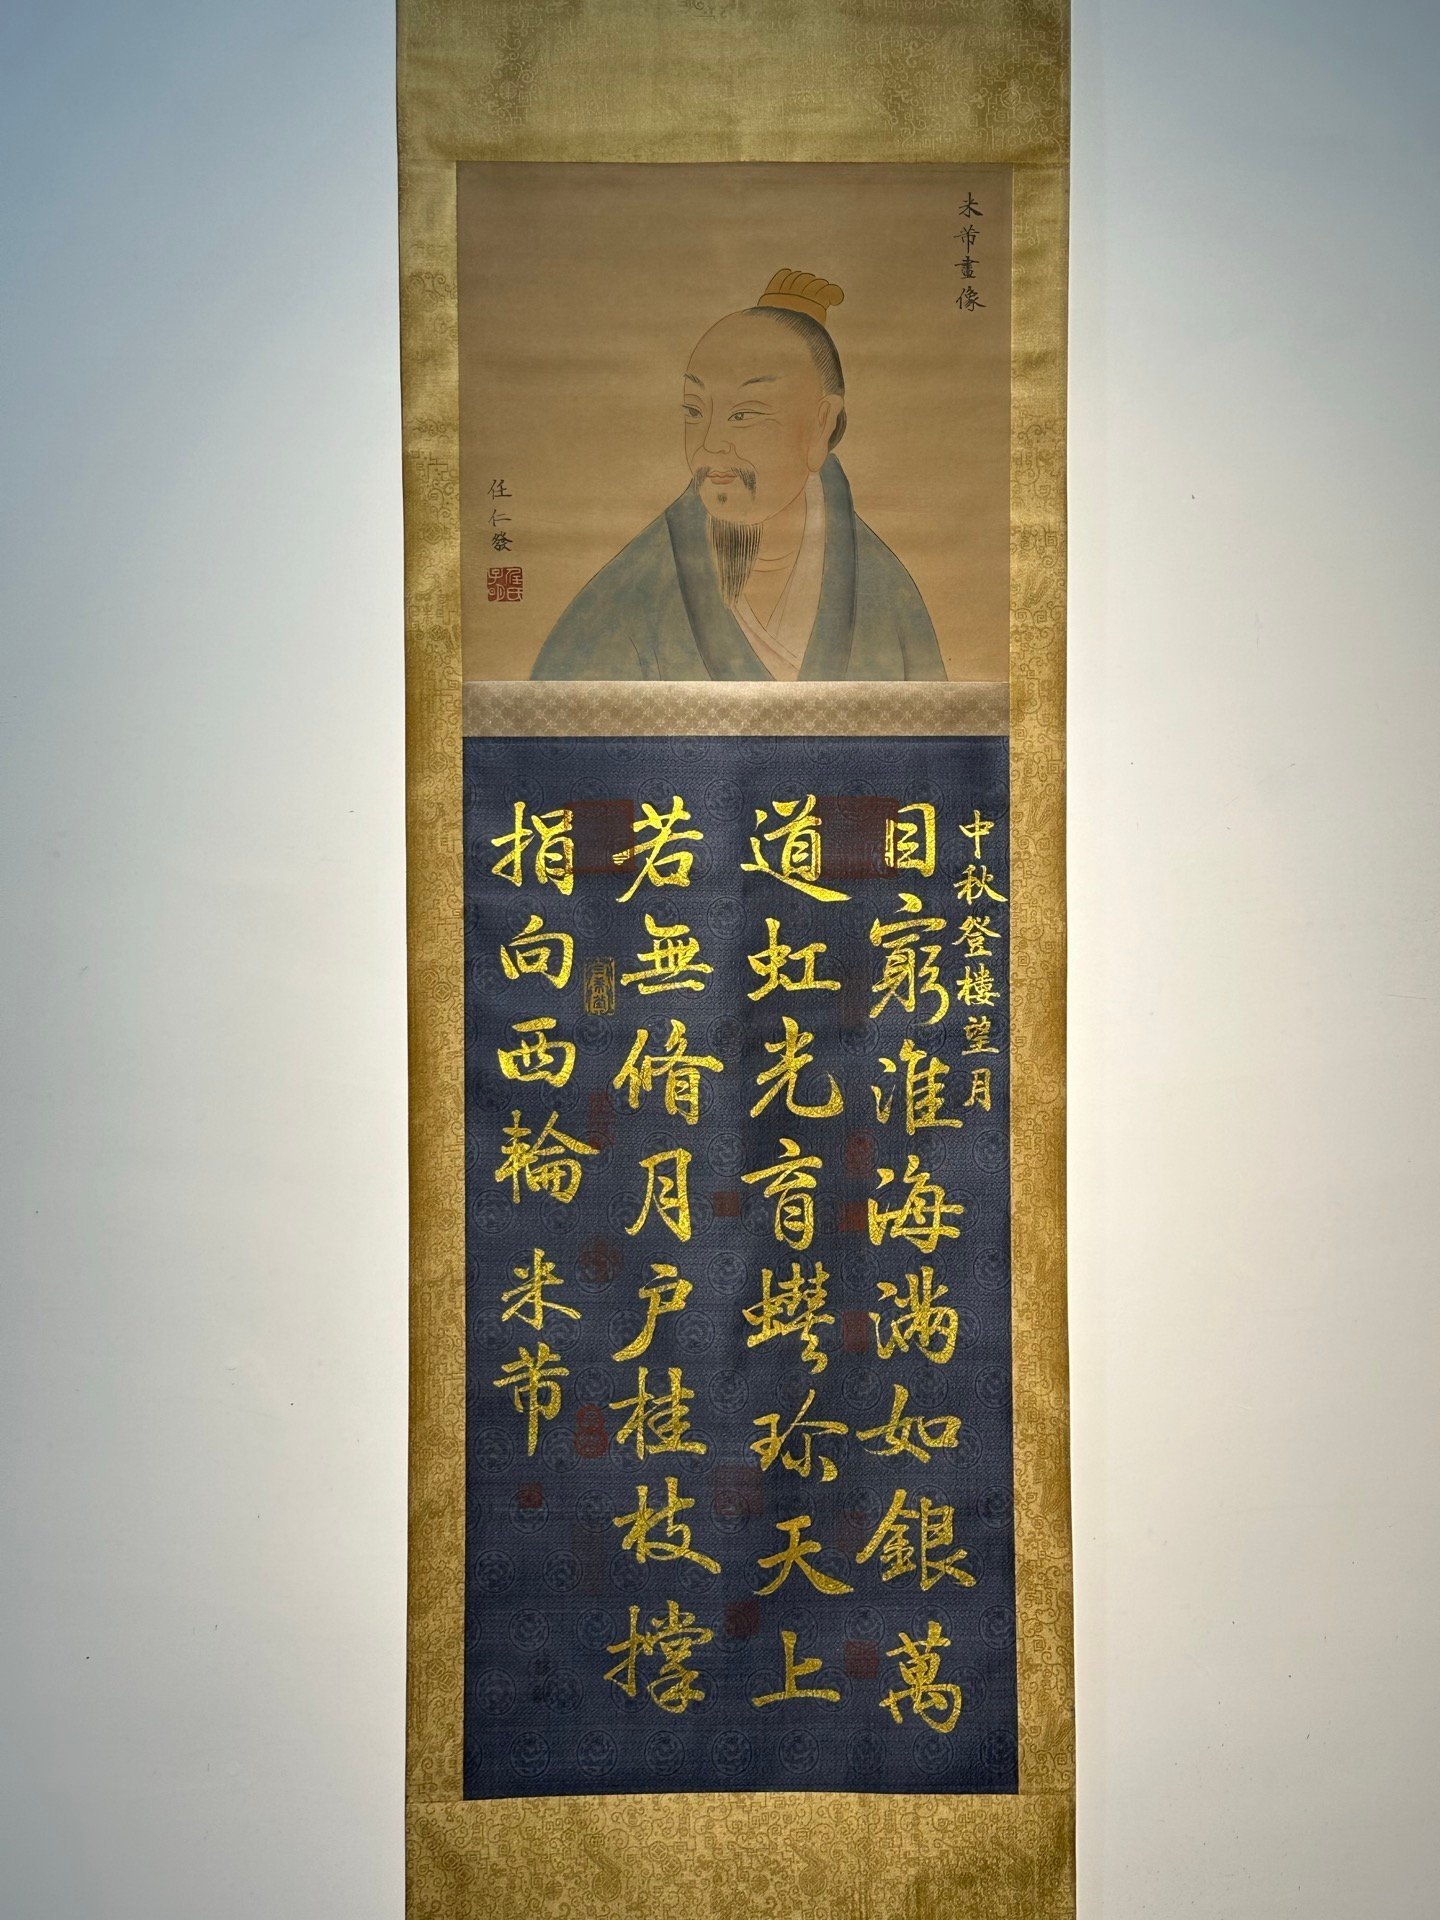 米芾畫像
任仁發
任氏子明
中秋登樓望月
目窮淮海滿如銀萬
道虹光育蠙珍天上
若無脩月户桂枝撐
損向西輪 米芾